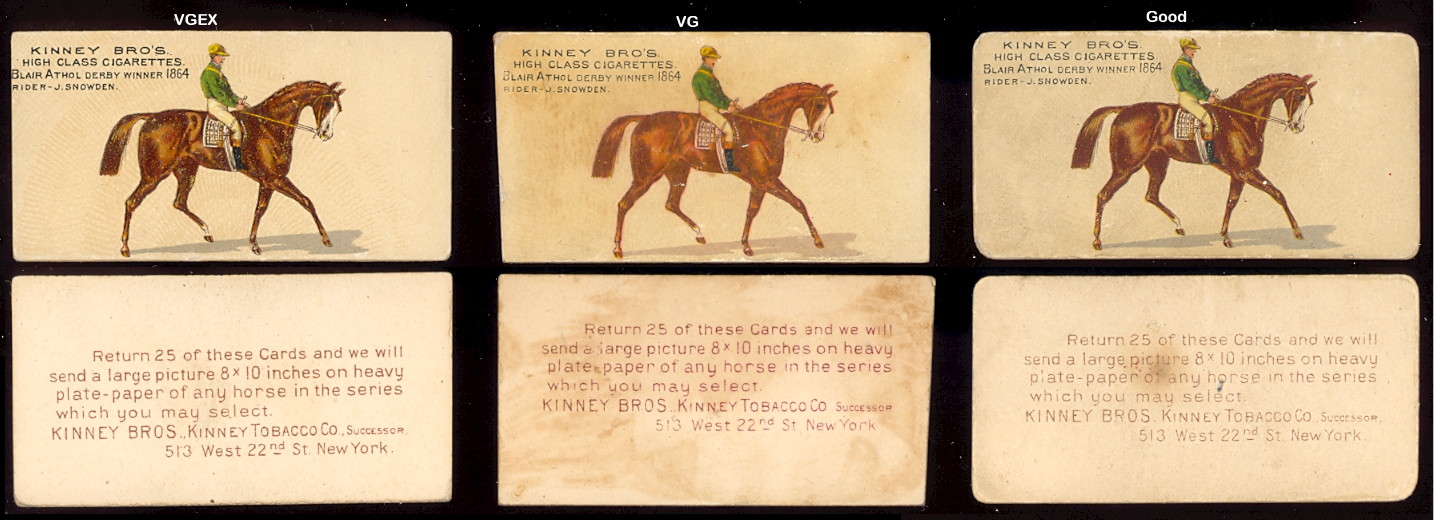 VGEX
VG
Good
KINNEY BRO'S.
HIGH CLASS CIGARETTES.
BLAIR ATHOL DERBY WINNER 1864
RIDER-J. SNOWDEN.
KINNEY BRO'S.
HIGH CLASS CIGARETTES.
BLAIR ATHOL DERBY WINNER 1864
RIDER-J. SNOWDEN.
KINNEY BRO'S.
HIGH CLASS CIGARETTES.
BLAIR ATHOL DERBY WINNER 1864
RIDER-J. SNOWDEN.
Return 25 of these Cards and we will
send a large picture 8x10 inches on heavy
plate-paper of any horse in the series
which you may select.
KINNEY BROS., KINNEY TOBACCO CO., SUCCESSOR,
513 West 22nd St. New York.
Return 25 of these Cards and we will
send a large picture 8x10 inches on heavy
plate-paper of any horse in the series
which you may select.
KINNEY BROS. KINNEY TOBACCO CO SUCCESSOR
513 West 22nd St New York
Return 25 of these Cards and we will
send a large picture 8x10 inches on heavy
plate-paper of any horse in the series
which you may select.
KINNEY BROS. KINNEY TOBACCO CO, SUCCESSOR,
513 West 22nd St. New York.